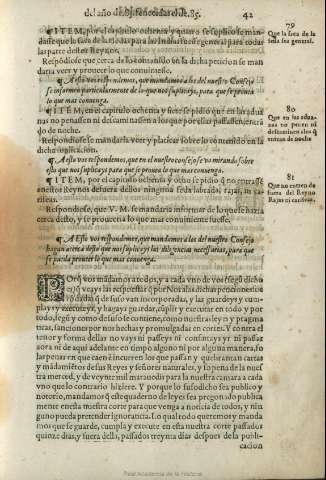 del año de 83. fenecidas el de 85. 42
¶ ITEM, por el capitulo ochenta y quatro se suplico se man
dasse que la saca de la seda para las Indias fuesse general para todas
las partes destos Reynos.
Respōdiose que cerca de lo contenido en la dicha peticion se man
daria veer y proueer lo que conuiniesse.
¶ A esto vos respondemos, que mandemos a los del nuestro Consejo
se informen particularmente de lo que nos suplicays, para que se prouea
lo que mas conuenga.
¶ ITEM, en el capitulo ochenta y siete se pidio que en las adua
nas no pensassen ni descaminassen a los que por ellas passassen
do de noche.
Respondiose se mandaria veer y platicar sobre lo contenido en la
dicha suplicacion.
¶ A esto vos respondemos, que en el nuestro consejo se va mirando sobre
esto que nos suplicays para que se prouea lo que mas conuenga.
¶ ITEM, por el capitulo ochenta y ocho se pidio q̄ no entrasse
en estos Reynos de fuera dellos ninguna seda labrada, rajas, ni ca
riseas.
Respondiose, que V. M. se mandaria informar de lo que se hazia
cerca desto, y se proueeria lo que mas conuiniente fuesse.
¶ A Esto vos respondemos, que mandemos a los del nuestro Consejo
hagan acerca desto que nos suplicays las diligencias necessarias, para que
se pueda proueer lo que mas conuenga.
Porq̄ vos mādamos a todos, y a cada vno de vos segū dicho
es, q̄ veays las respuestas q̄ por Nos a las dichas peticiones fue
rō dadas q̄ de suso van incorporadas, y las guardeys y cum
play s y executeys, y hagays guardar, cūplir y executar en todo y por
todo, segū y como de suso se contiene, como nuestras leyes y pragma
ticas, sanciones por nos hechas y promulgadas en cortes. Y contra el
tenor y forma dellas no vays ni passeys ni consintays yr ni passar
aora ni de aqui adelante en tiempo alguno ni por alguna manera, so
las penas en que caen è incurren los que passan y quebrantan cartas
y mādamiētos de sus Reyes y señores naturales, y so pena de la nues
tra merced, y de veynte mil marauedis para la nuestra camara a cada
vno que lo contrario hiziere. Y porque lo susodicho sea publico y
notorio, mandamos q̄ este quaderno de leyes sea pregonado publica
mente en esta nuestra corte para que venga a noticia de todos, y nin
guno pueda pretender ignorancia. Lo qual todo queremos y manda
mos que se guarde, cumpla y execute en esta nuestra corte passados
quinze dias, y fuera della, passados treynta dias despues de la publi-
cacion
79
Que la saca de la
seda sea general.
80
Que en las adua
nas no pesen ni
descaminen a los q̄
entran de noche
81
Que no entren de
fuera del Reyno
Rajas ni cariseas.
Real Academia de la Historia